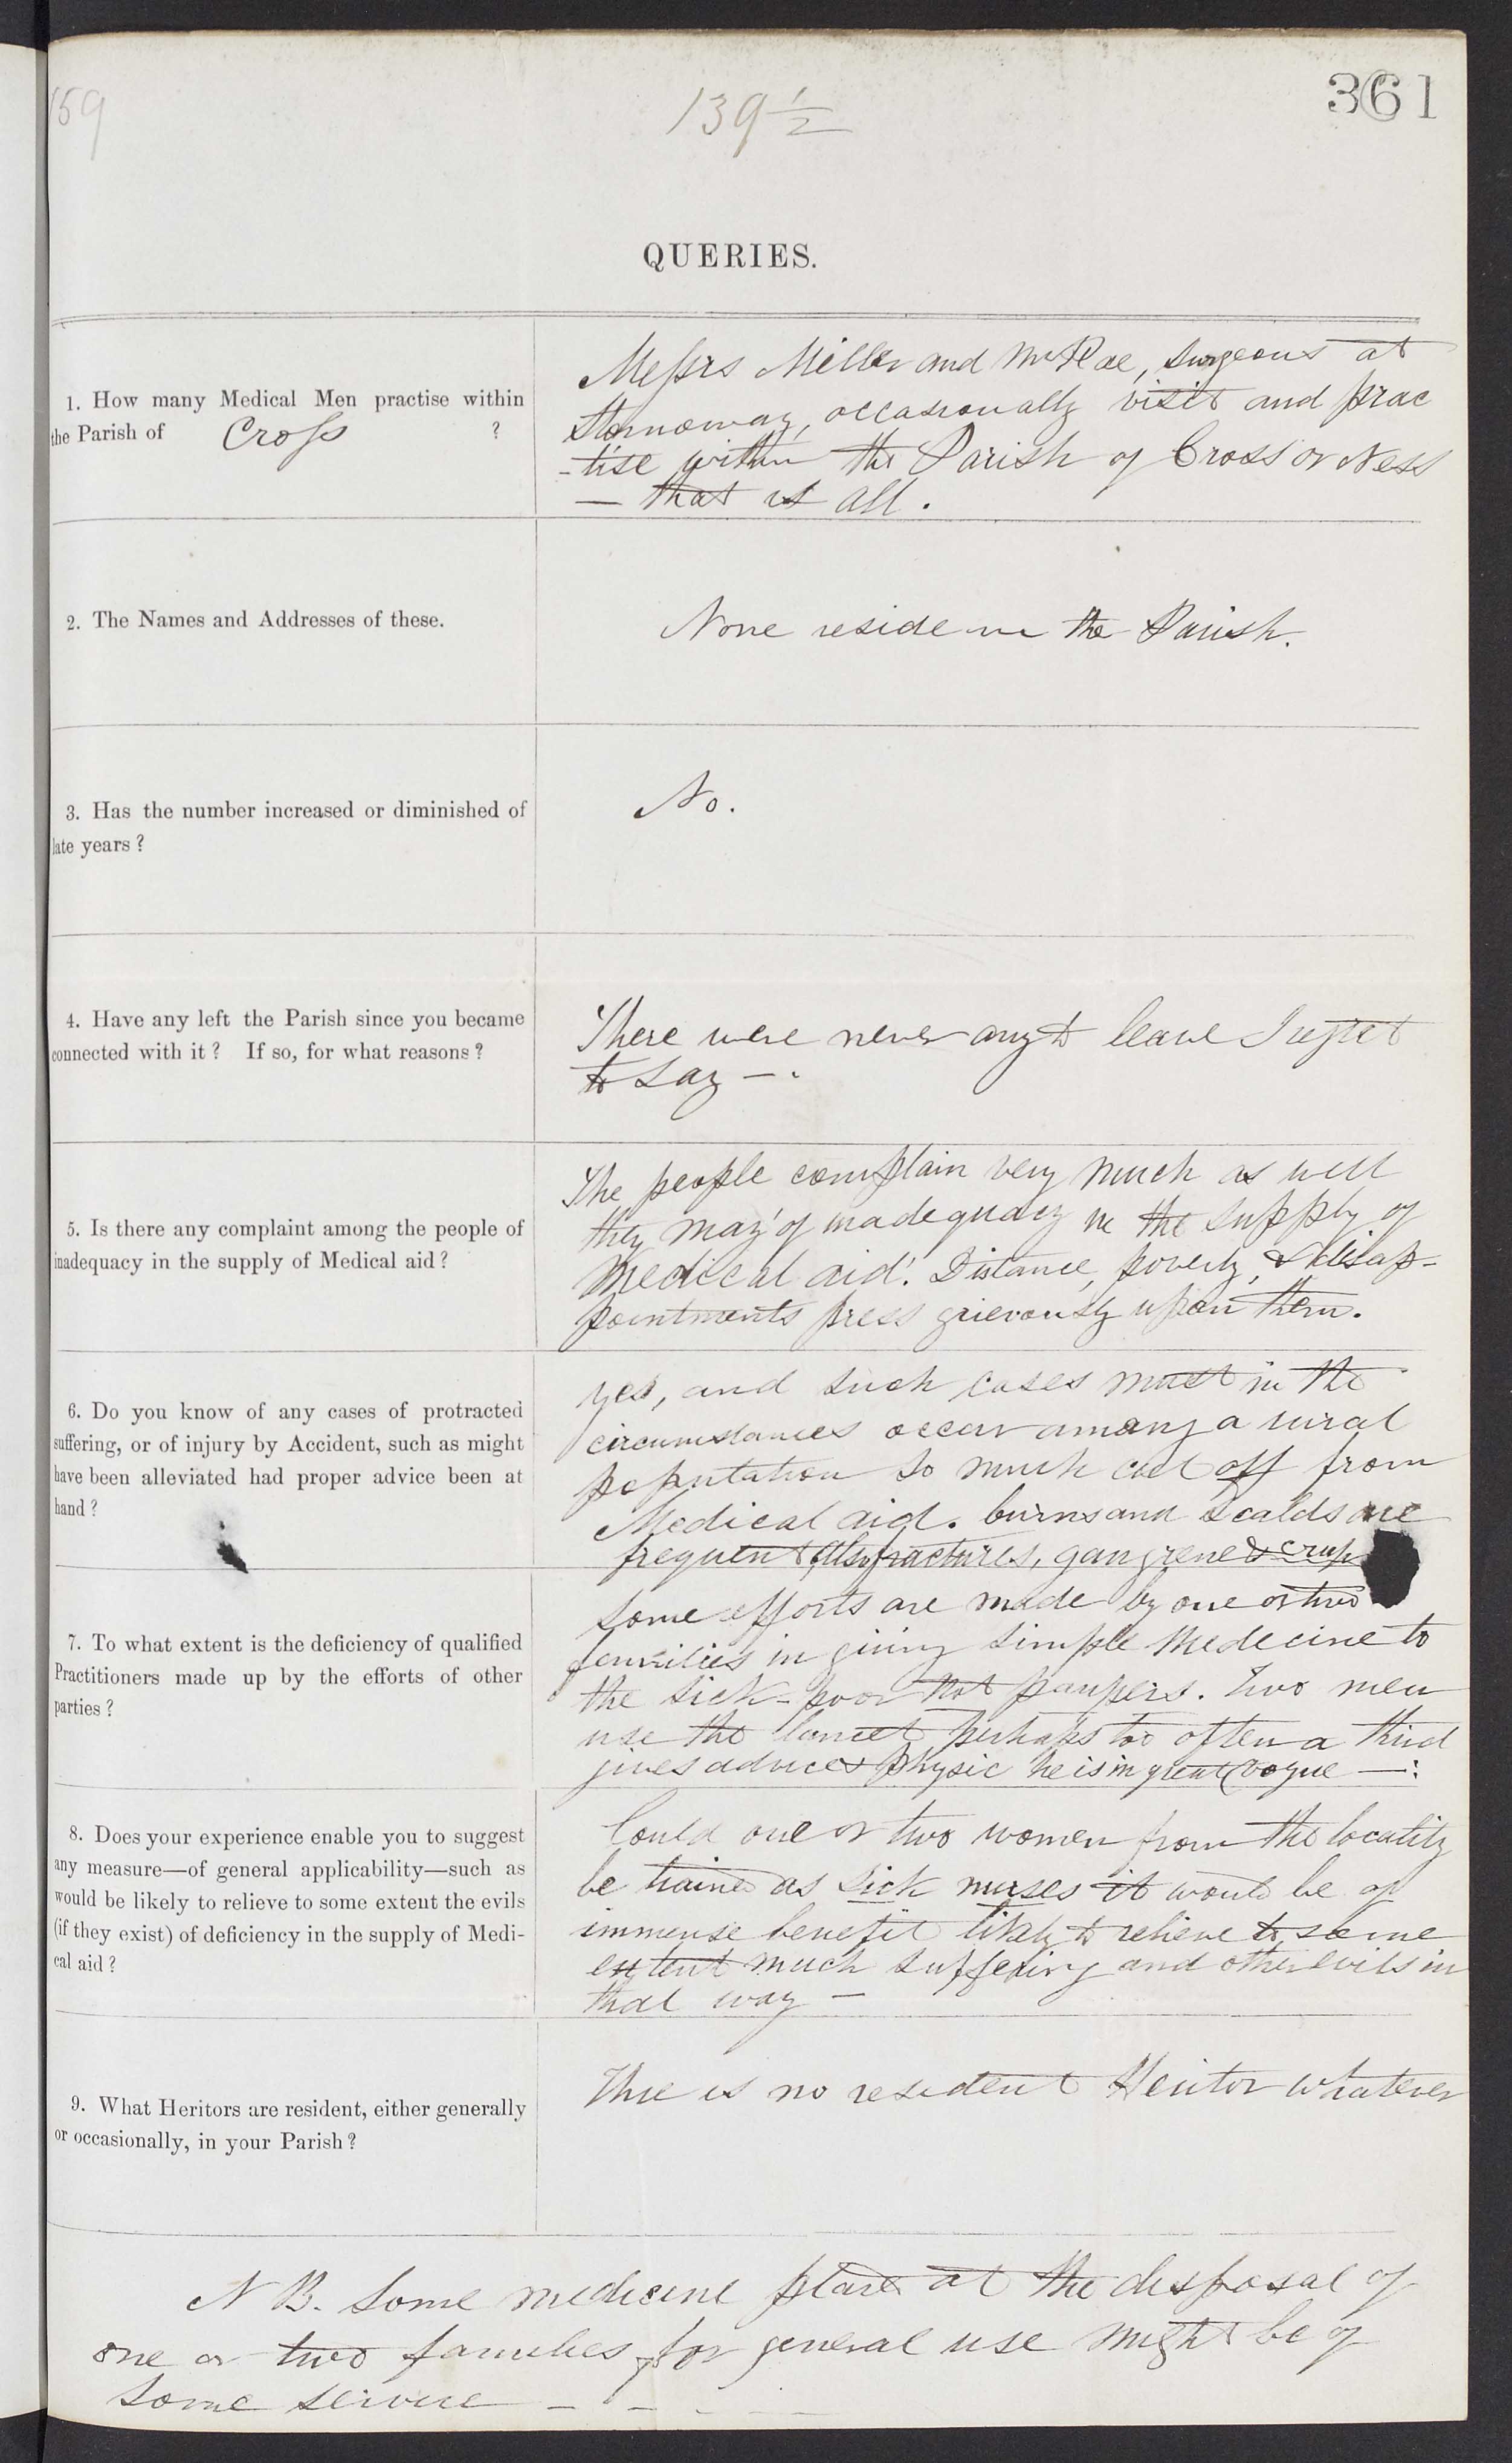 159
139 1/2
361
QUERIES.
1. How many Medical Men practise within
the Parish of Cross ?
Messrs Miller and McRae, Surgeons at
Stornoway, occasionally visit and prac
-tise within the Parish of Cross or Ness
— that is all.
2. The Names and Addresses of these.
None reside in the Parish.
3. Has the number increased or diminished of
late years?
No.
4. Have any left the Parish since you became
connected with it? If so, for what reasons?
There were never any to leave I regret
to say —.
5. Is there any complaint among the people of
inadequacy in the supply of Medical aid?
The people complain very much as well
they may 'of inadequacy in the supply of
Medical aid'. Distance, poverty, & disap-
pointments press grievously upon them.
6. Do you know of any cases of protracted
suffering, or of injury by Accident, such as might
have been alleviated had proper advice been at
hand?
yes, and such cases must in the
circumstances occur among a rural
population so much cut off from
Medical aid. burns and scalds are
frequent, also fractures, gangrene & croup
7. To what extent is the deficiency of qualified
Practitioners made up by the efforts of other
parties?
Some efforts are made by one or two
families in giving simple Medecine to
the sick-poor not paupers. Two men
use the lancet perhaps too often a third
gives advice & physic he is in great vogue —:
8. Does your experience enable you to suggest
any measure—of general applicability—such as
would be likely to relieve to some extent the evils
(if they exist) of deficiency in the supply of Medi-
cal aid?
Could one or two women from the locality
be trained as sick nurses it would be of
immense benefit likely to relieve to some
extent much suffering and other evils in
that way —
9. What Heritors are resident, either generally
or occasionally, in your Parish?
There is no resident Heritor whatever
N B. Some medicine placed at the disposal of
one or two families for general use might be of
some service — — - —